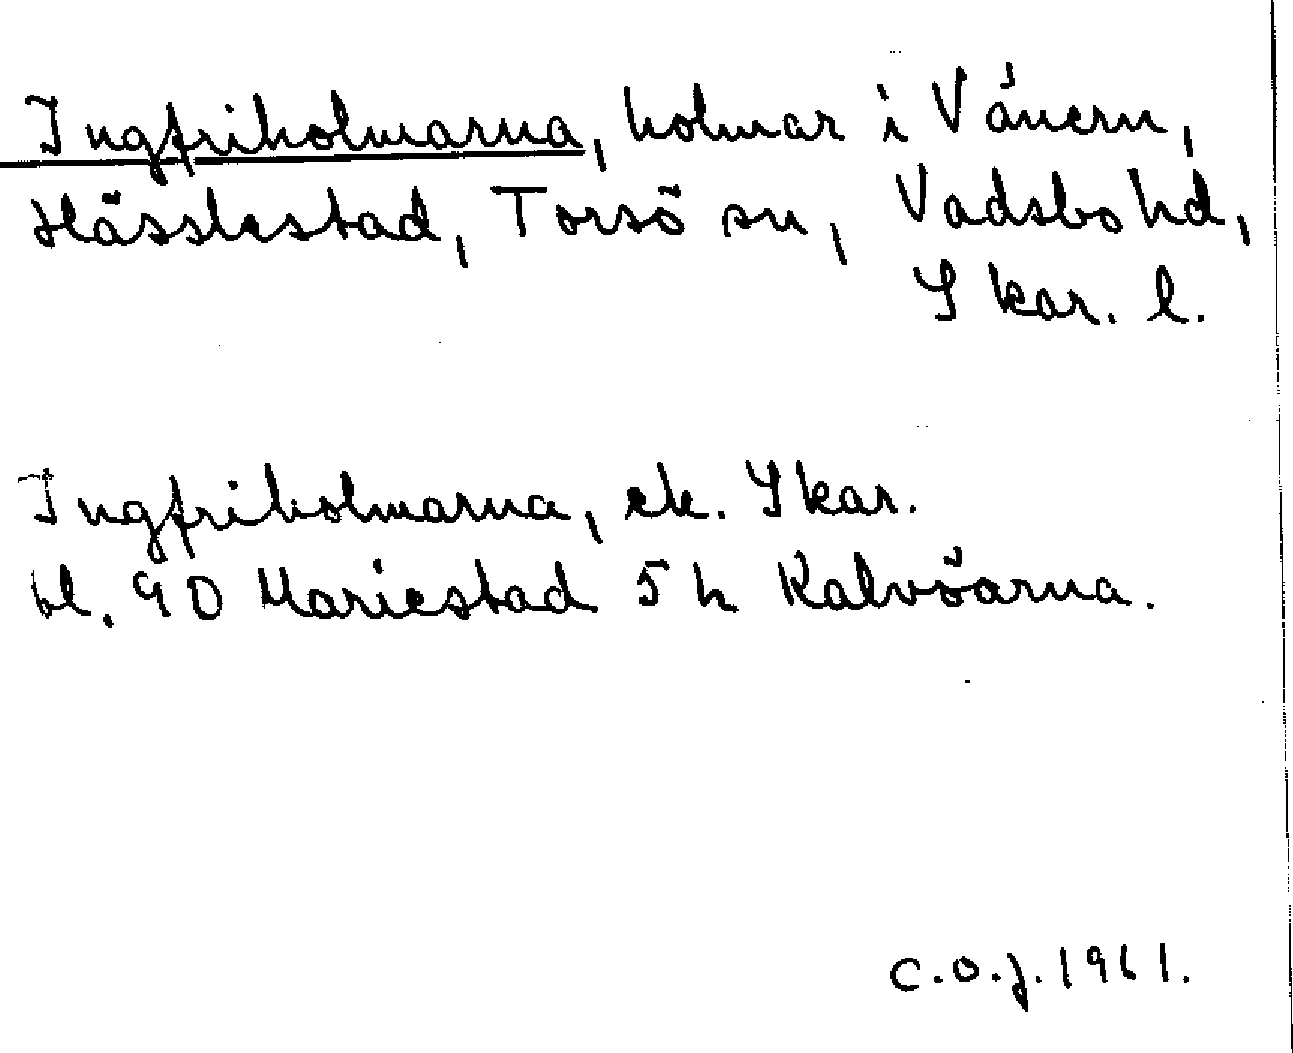 Ingfriholmarna, holmar i Vänern,
Hässlestad, Torsö sn, Vadsbo hd,
Skar. l.
Ingfriholmarna, ek. Skar.
bl. 90 Mariestad 5 h Kalvöarna.
C.O.J. 1961.